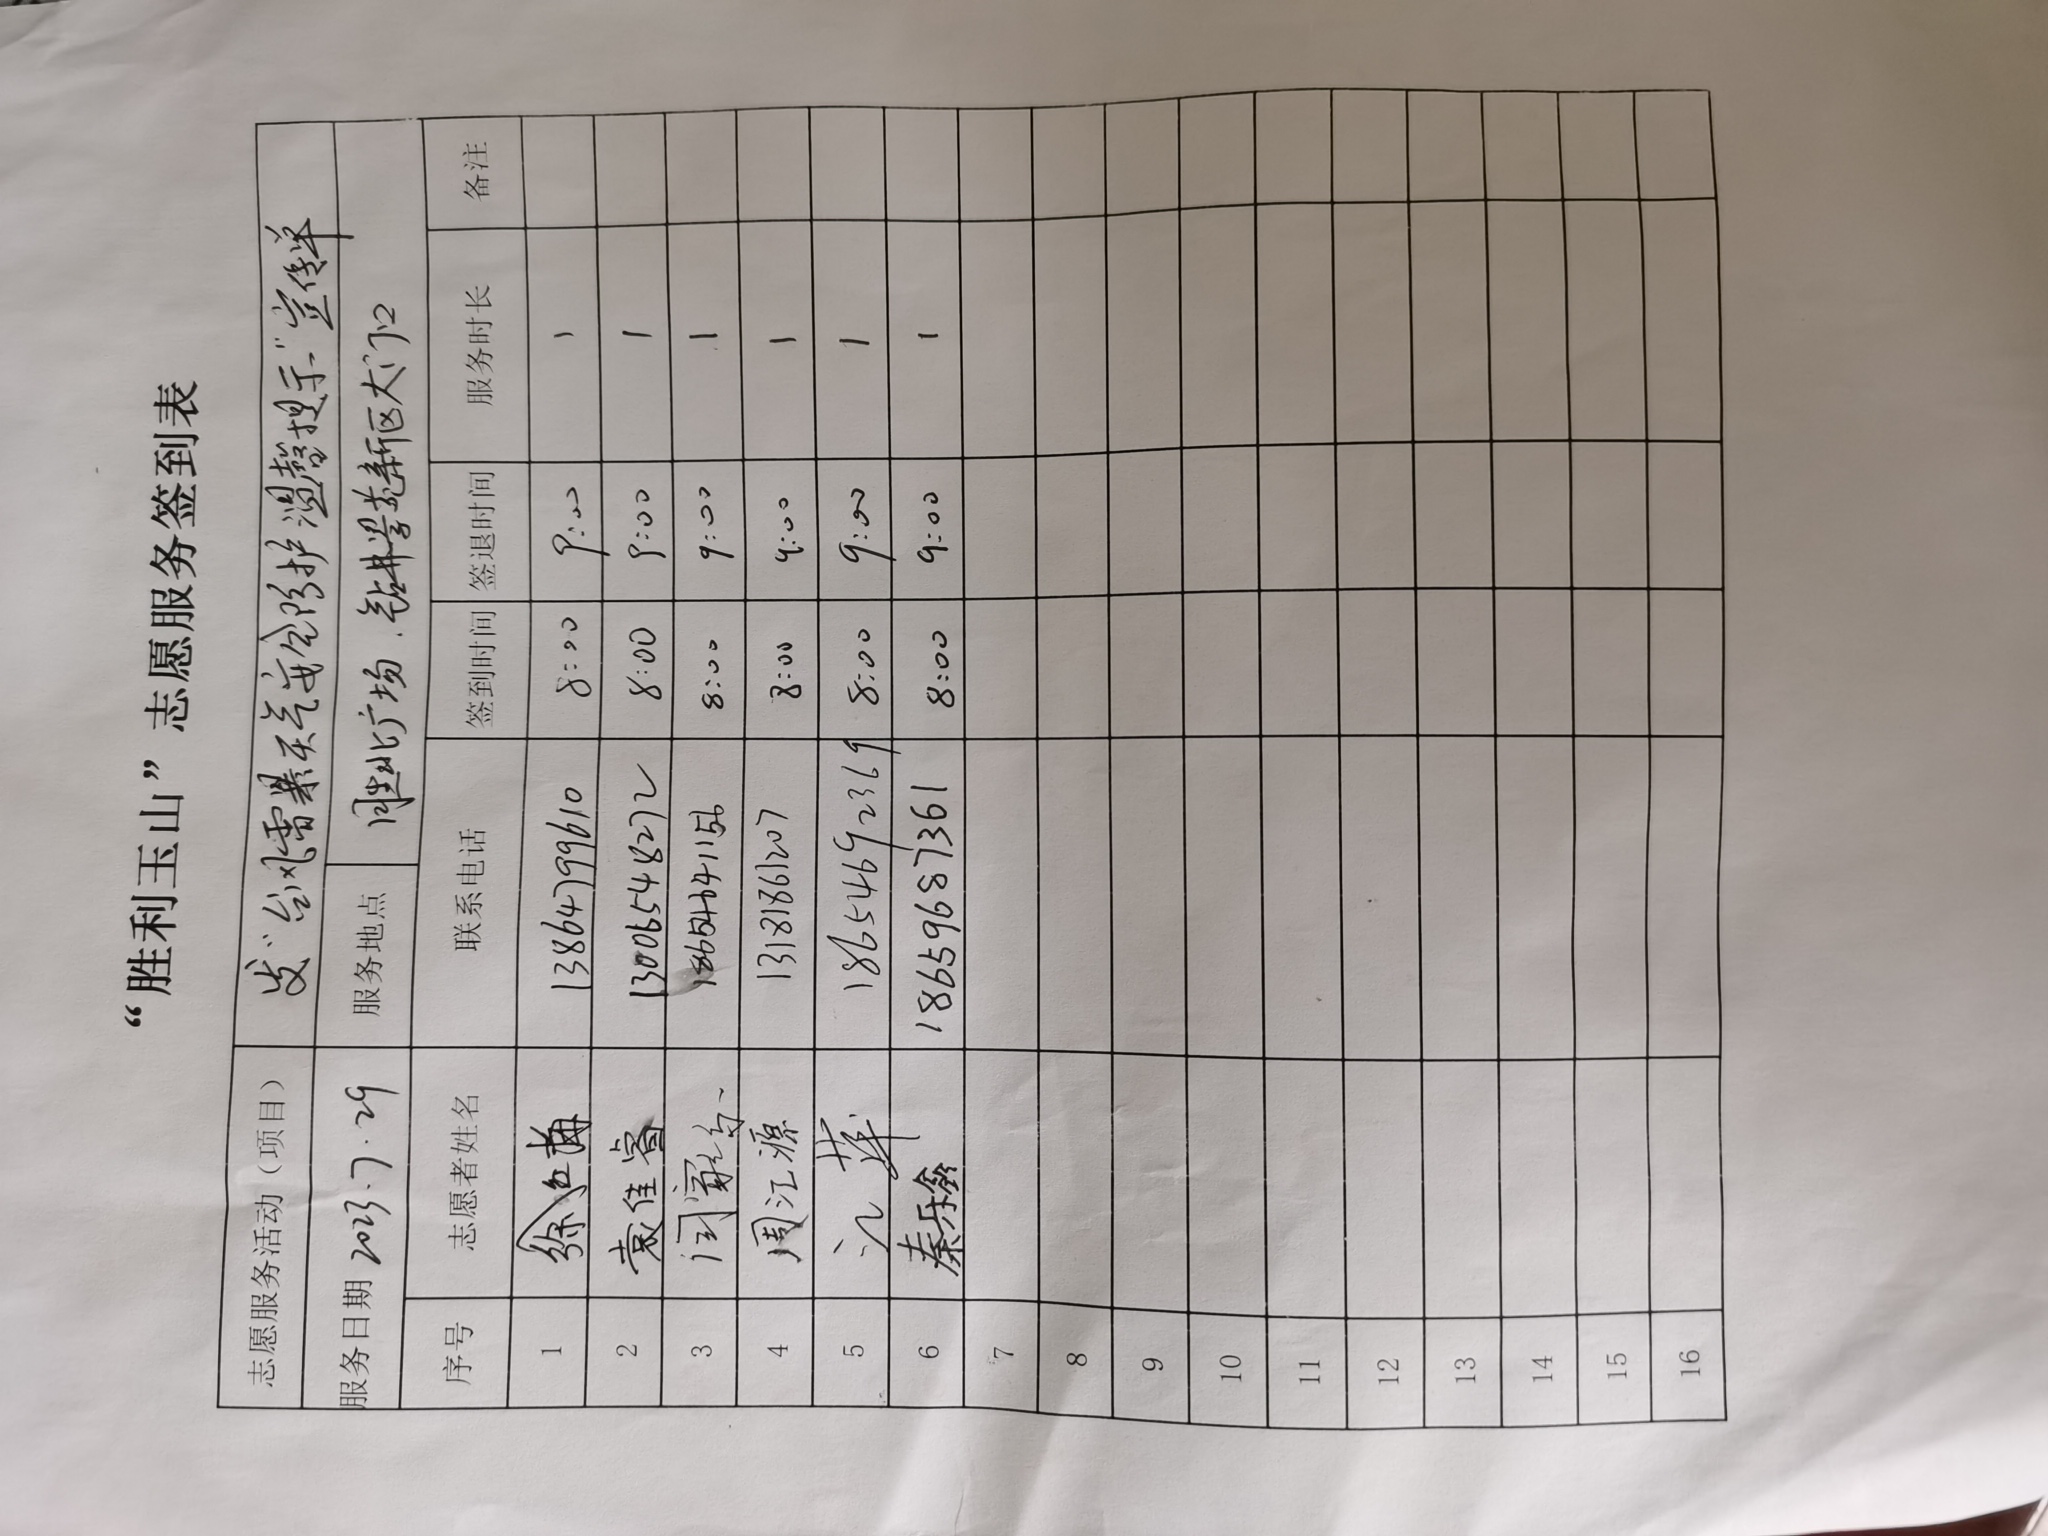 “胜利玉山”志愿服务签到表
志愿服务活动（项目） 发“台风雷暴天气安全防护温馨提示”宣传单
服务日期 2023.7.29 服务地点 广场、钻井 新区大门口
序号 志愿者姓名 联系电话 签到时间 签退时间 服务时长 备注
1 徐 梅 13864799610 8:00 9:00 1
2 袁佳睿 13006548272 8:00 9:00 1
3 18654641156 8:00 9:00 1
4 周汇源 13181861207 8:00 9:00 1
5 18654692369 8:00 9:00 1
6 秦乐鑫 18659687361 8:00 9:00 1
7
8
9
10
11
12
13
14
15
16